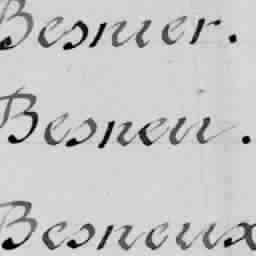 Besnier.
Besneu.
Besneux